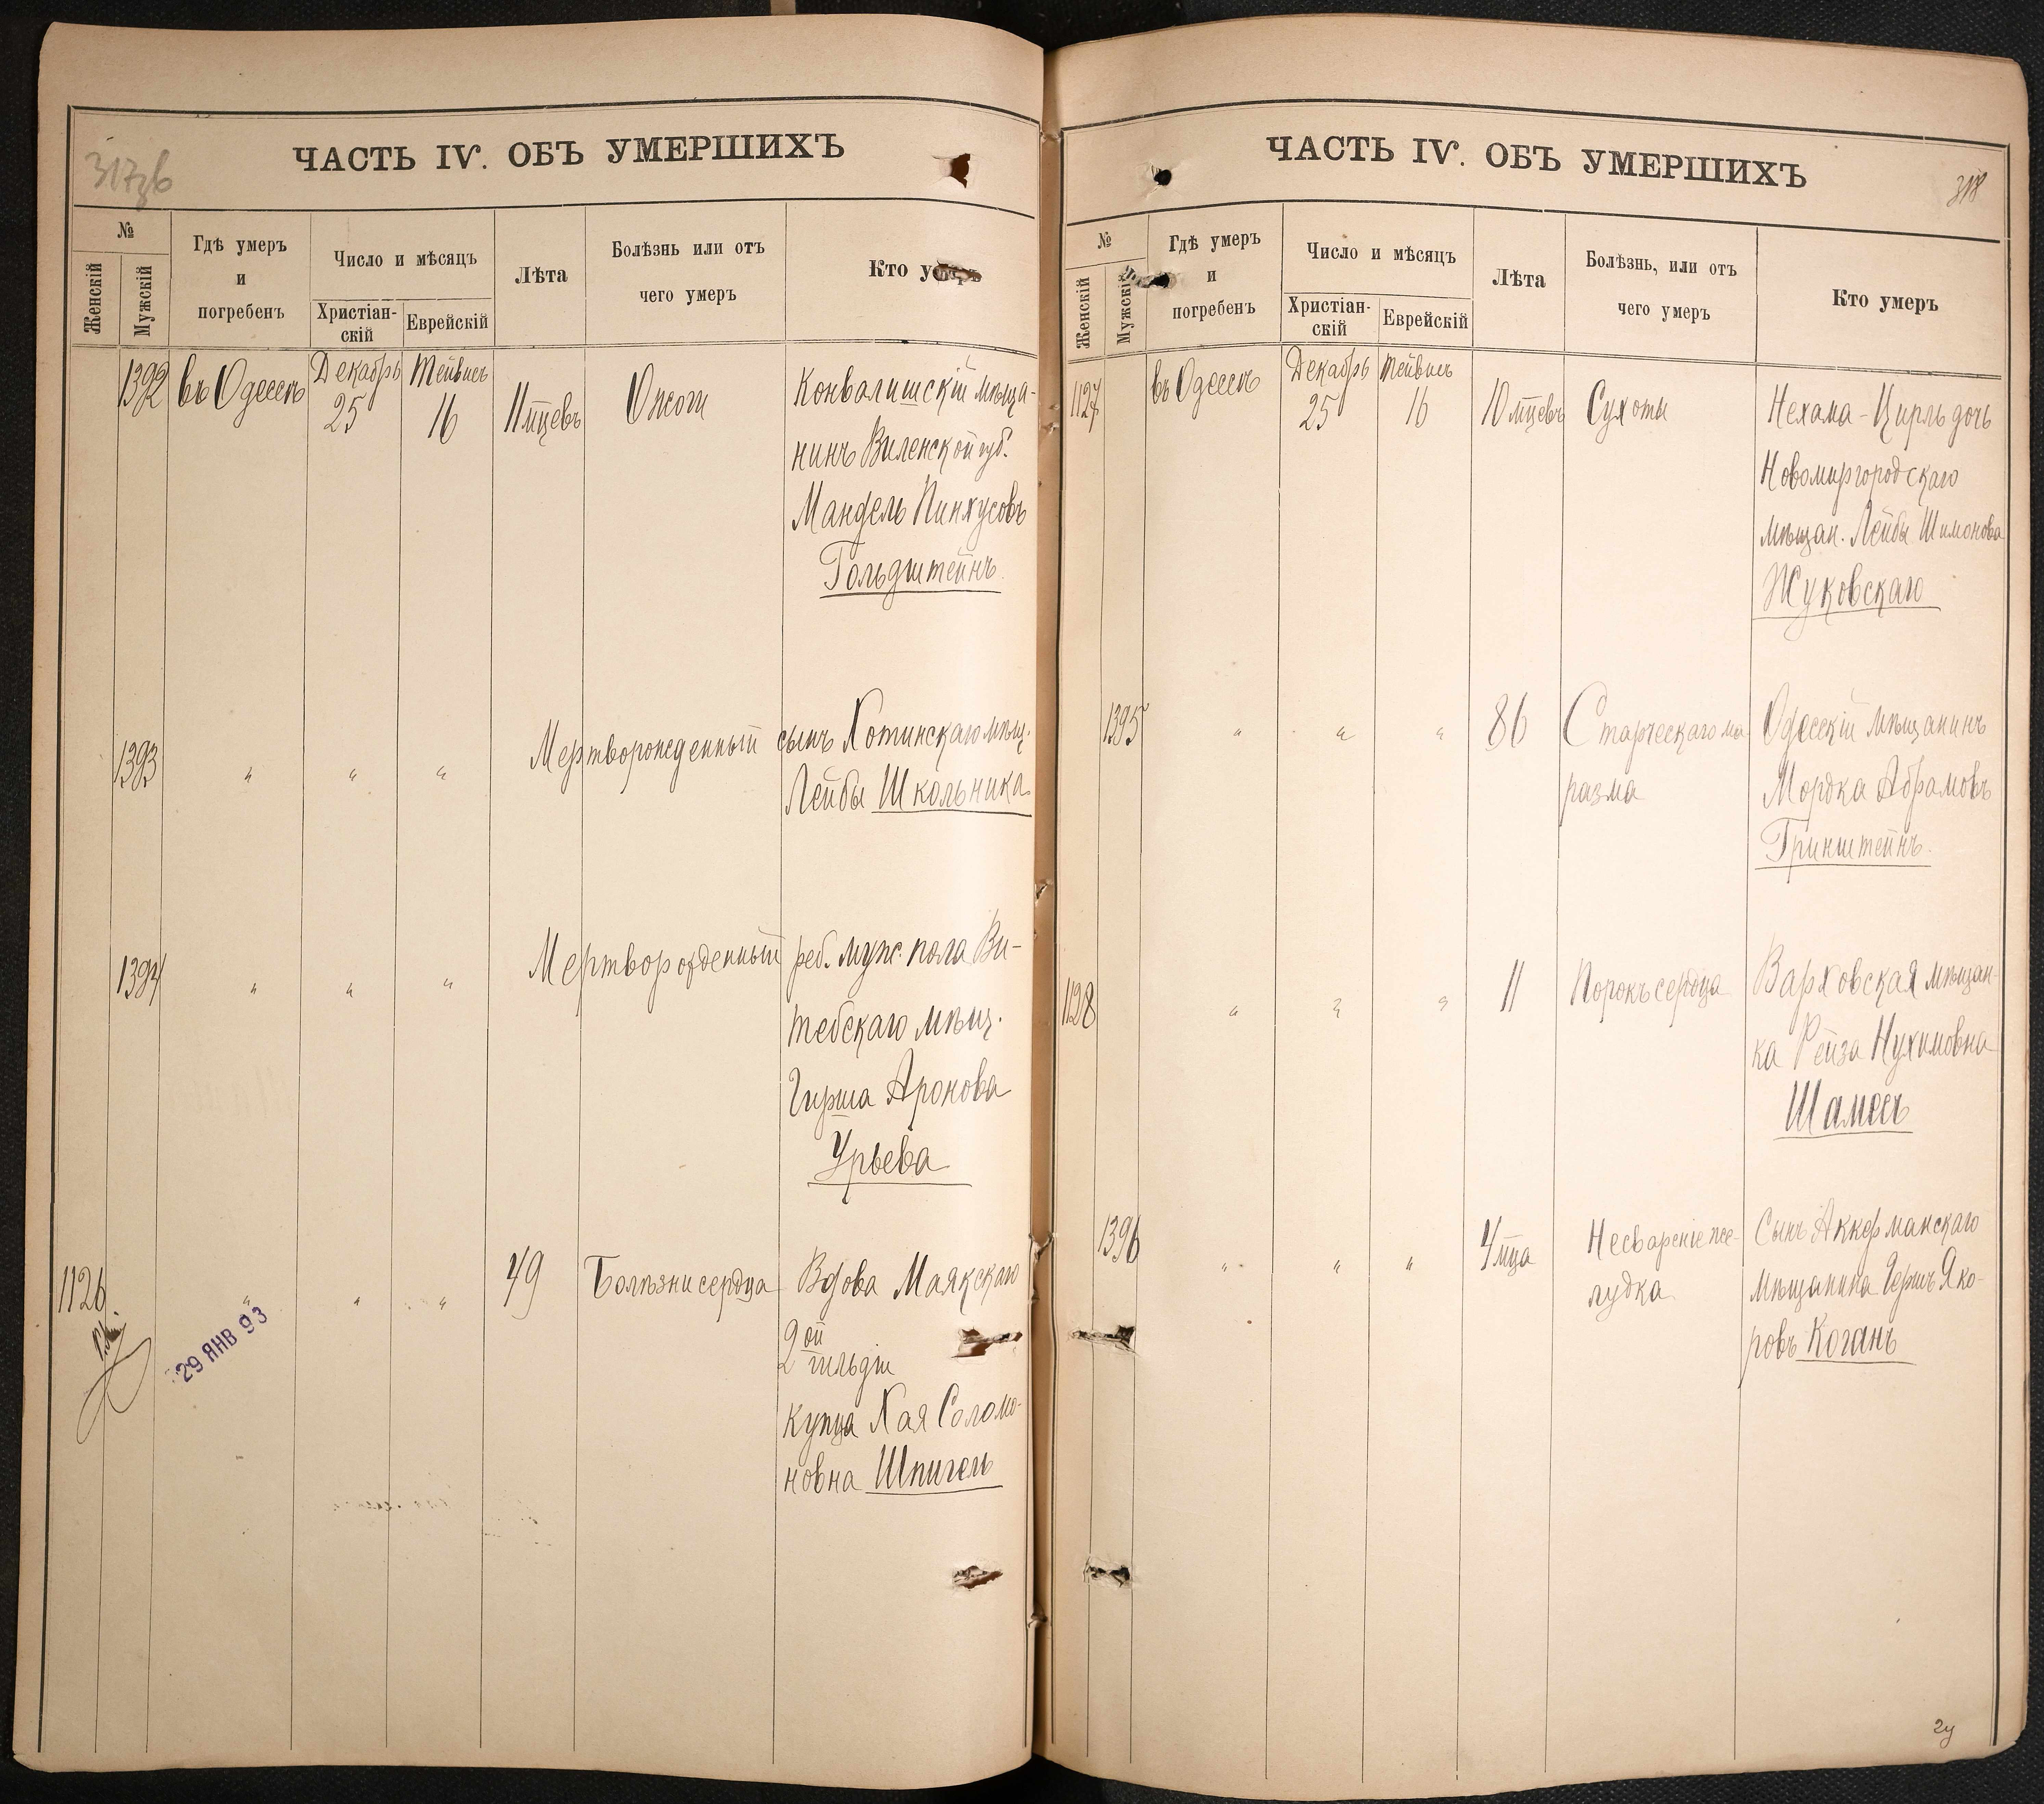 317об
ЧАСТЬ IV. ОБЪ УМЕРШИХЪ
№
Женскій
Мужскій
Гдѣ умеръ
и
погребенъ
Число и мѣсяцъ
Христіан-
скій
Еврейскій
Лѣта
Болѣзнь или отъ
чего умеръ
Кто умеръ
1392 въ Одессѣ Декабрь 25 Тейвисъ 16 11 мцевъ Ожоги
Конвалишскій мѣща-
нинъ Виленской губ.
Мандель Пинхусовъ
Гольдштейнъ.
1393 " " " Мертворожденный сынъ Хотинскаго мѣщ.
Лейбы Школьника
1394 " " " Мертворожденный реб. муж. пола Ви-
тебскаго мѣщ.
Гирша Аронова
Урьева
1126 " " " 49 Болѣзни сердца Вдова Маякскаго
2ой гильдіи
купца Хая Соломо-
новна Шпигель
29 ЯНВ 93
ЧАСТЬ IV. ОБЪ УМЕРШИХЪ
318
№
Женскій
Мужскій
Гдѣ умеръ
и
погребенъ
Число и мѣсяцъ
Христіан-
скій
Еврейскій
Лѣта
Болѣзнь, или отъ
чего умеръ
Кто умеръ
1127 въ Одессѣ Декабрь 25 Тейвисъ 16 10 мцевъ Сухоты
Нехама-Цирль дочь
Новомиргородскаго
мѣщан. Лейбы Шимонова
Жуковскаго
1395 " " " 86 Старческаго ма-
разма
Одесскій мѣщанинъ
Мордка Абрамовъ
Гринштейнъ.
1128 " " " 11 Порокъ сердца
Варховская мѣщан-
ка Рейза Нухимовна
Шамесъ
1396 " " " 4 мца Несвареніе же-
лудка
Сынъ Аккерманскаго
мѣщанина Гершъ Яко-
ровъ Коганъ